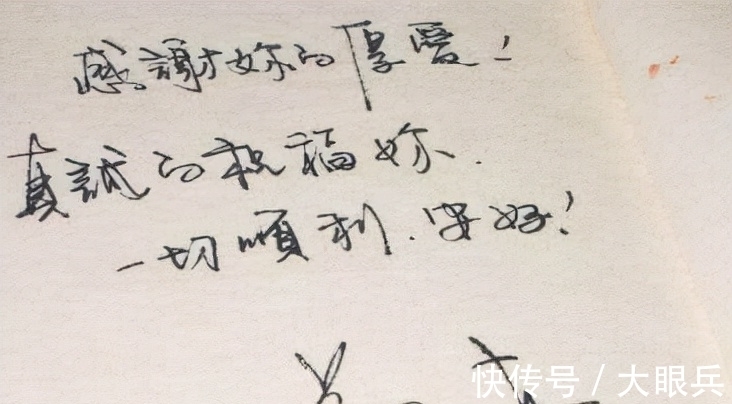 感謝妳的厚愛！
真誠的祝福妳.
一切順利.安好！
快传号/大眼兵